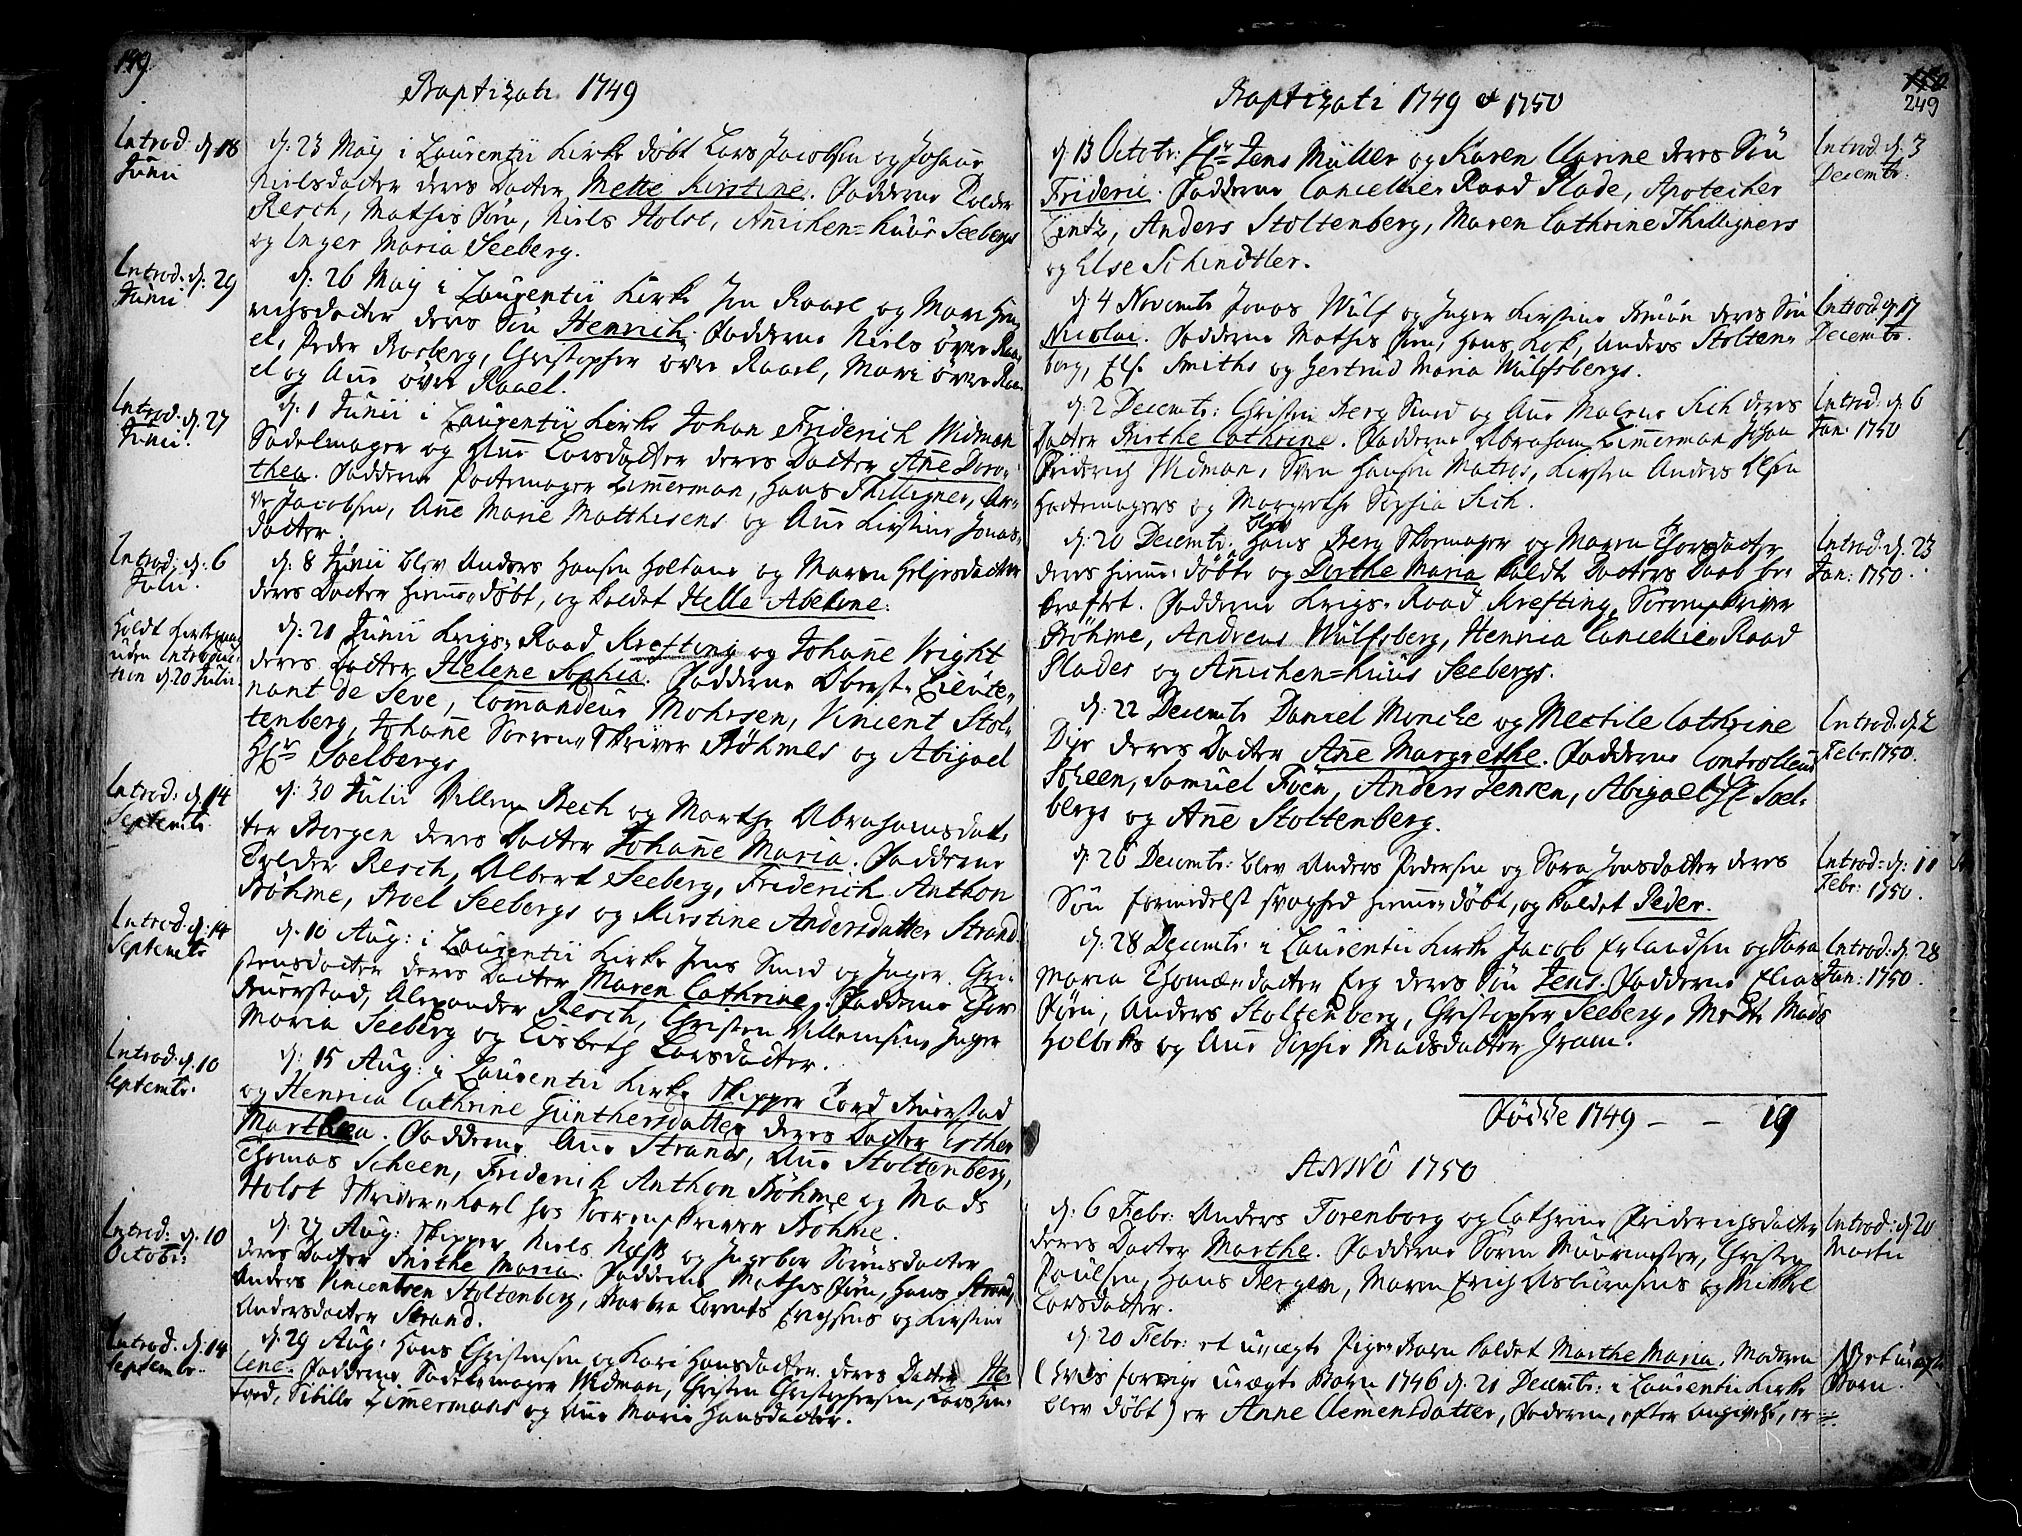 149.
Baptizati 1749
Introd: d: 18
Junii
d: 23 Maij i Laurentii Kirke døbt Lars Jacobsen og Johane
Nielsdatter deres Datter Mette Kirstine. Fadderne Tolder
Resch, Mathis Førn, Niels Holst, Anichen Huus Seebergs
og Inger Maria Seeberg.
Introd: d: 29
Junii
d: 26 Maij i Laurentii Kirke Jen Raael og Mari Hen
richsdatter deres Søn Henrich. Fadderne Niels øvre Raa
el, Peder Rosberg, Christopher øvre Raael, Mari øvre Raa
el og Ane øvre Raael.
Introd: d: 27
Junii
d: 1 Junii i Laurentii Kirke Johan Friderich Widman
Sadelmager og Ane Larsdatter deres Datter Ane Doro
thea. Fadderne Zimerman, Hans Thilligner, An
Jacobsen, Ane Marie Matthisens og Ane Kirstine Jonas
datter.
Introd: d: 6
Julii
d: 8 Junii blev Anders Hansen Holtane og Maren Heljesdatter
deres Datter hiemedøbt, og kaldet Helle Abelone.
Holdt Kirkegang
uden Introduc
tion d. 20 Julii
d: 21 Junii Krigs Raad Krefting og Johane Vright
deres Datter Helene Sophia. Fadderne Oberst Lieute
nant de Seve, Comandeur Mohrsen, Vincent Stol
tenberg, Johane Sorren Skriver Bøhmes og Abigael
Hr Soelbergs
Introd: d: 14
Septembr:
d: 30 Julii Villem Bech og Marthe Abrahamsdat
ter Borgen deres Datter Johane Maria. Fadderne
Tolder Resch, Albert Seeberg, Friderich Anthon
Bøhme, Boel Seebergs og Kirstine Andersdatter Strand.
Introd: d: 14
Septembr
d. 10 Aug: i Laurentii Kirke Jens Smed og Inger Chri
stensdatter deres Datter Maren Cathrine. Fadderne Thor
Auerstad, Alexander Resch, Christen Villemsen, Inger
Maria Seeberg og Lisbeth Larsdatter.
Introd. d. 10
Septembr:
d: 15 Aug: i Laurentii Kirke Skipper Tord Auerstad
og Henrica Cathrine Günthersdatter deres Datter Esther
Marthea. Fadderne Ane Strands, Ane Stoltenberg,
Thomas Scheen, Friderich Anthon Bøhme og Mads
Holst Skriverkarl hos Sorenskriver Bøhme.
Introd: d. 10
Octobr:
d: 27 Aug: Skipper Niels og Ingebor Sørensdatter
deres Datter Birthe Maria. Fadderne Mathis Førn, Hans Strand,
Anders Vincentsen Stoltenberg, Barbra Lorents Erichsens og Kirstine
Andersdatter Strand.
Introd. d. 14
Septembr.
d. 29 Aug: Hans Christensen og Kari Hansdatter deres Datter He
lene. Fadderne Sadelmager Widman, Christen Christophersen, Lars
Sibille Zimermans og Ane Marie Hansdatter.
249
Baptizati 1749 & 1750
d: 13 Octobr: Hr Jens Müller og Karen Clarine deres Søn
Frideric. Fadderne Cancellie Raad Blade, Apotecher
Anders Stoltenberg, Maren Cathrine Thilligners
og Else Schindtler.
Introd: d: 3
Decembr:
d. 4 Novembr Jonas Wulf og Inger Kirstine deres Søn
Nicolai. Fadderne Mathis Førn, Hans Anders Stolten
berg, Els. Smiths og Gertrud Maria Wulfsbergs.
Introd: d 17
Decembr.
d: 2 Decembr: Christen Berg Smed og Ane Malene Sich deres
Datter Birthe Cathrine. Fadderne Abraham Zimerman, Johan
Friderich Widman, Sven Hansen Matros, Kirsten Anders Olsen
Hattemagers og Margrethe Sophia Sich.
Introd: d: 6
Jan: 1750
d: 20 Decembr: blev Hans Berg Skoemager og Maren Thorsdatter
deres hieme døbte og Dorthe Maria kaldte Datters Daab be
kræftet. Fadderne Krigs-Raad Krefting, Sorenskriver
Bøhme, Andreas Wulfsberg, Henrica Cancellie Raad
Blades og Anichen Huus Seebergs.
Introd: d: 23
Jan: 1750.
d: 22 Decembr Daniel Moncke og Mectile Cathrine
deres Datter Ane Margrethe. Fadderne Controlleur
Scheen, Samuel Føen, Anders Jensen, Abigael Hr Soel
bergs og Ane Stoltenberg.
Introd: d. 2
Febr: 1750.
d. 26 Decembr: blev Anders Pedersen og Sara Jonsdatter deres
Søn formedelst svaghed hiemedøbt, og kaldet Peder.
Introd: d: 11
Febr: 1750.
d: 28 Decembr: i Laurentii Kirke Jacob Erlandsen og Sara
Maria Thomædatter deres Søn Jens. Fadderne Elias
Førn, Anders Stoltenberg, Christopher Seeberg, Mads
Holbeks og Ane Sophie Madsdatter Gram.
Introd: d: 28
Jan: 1750.
Fødde 1749 - - 19
ANNO 1750
d: 6 Febr: Anders Forenborg og Cathrine Friderichsdatter
deres Datter Marthe. Fadderne Søren Muurmester, Christen
Poulsen, Hans Bergen, Maren Erich Asbiørnsens og Mikkel
Larsdatter.
Introd: d: 20
Martii
d: 20 Febr: et uægte Pige Barn kaldet Marthe Maria. Moderen
(hvis forrige uægte Barn 1746 d: 21 Decembr: i Laurentii Kirke
blev døbt) er Anne Clemensdatter, Faderen, efter angivelse, er
NB et uægte
Barn.